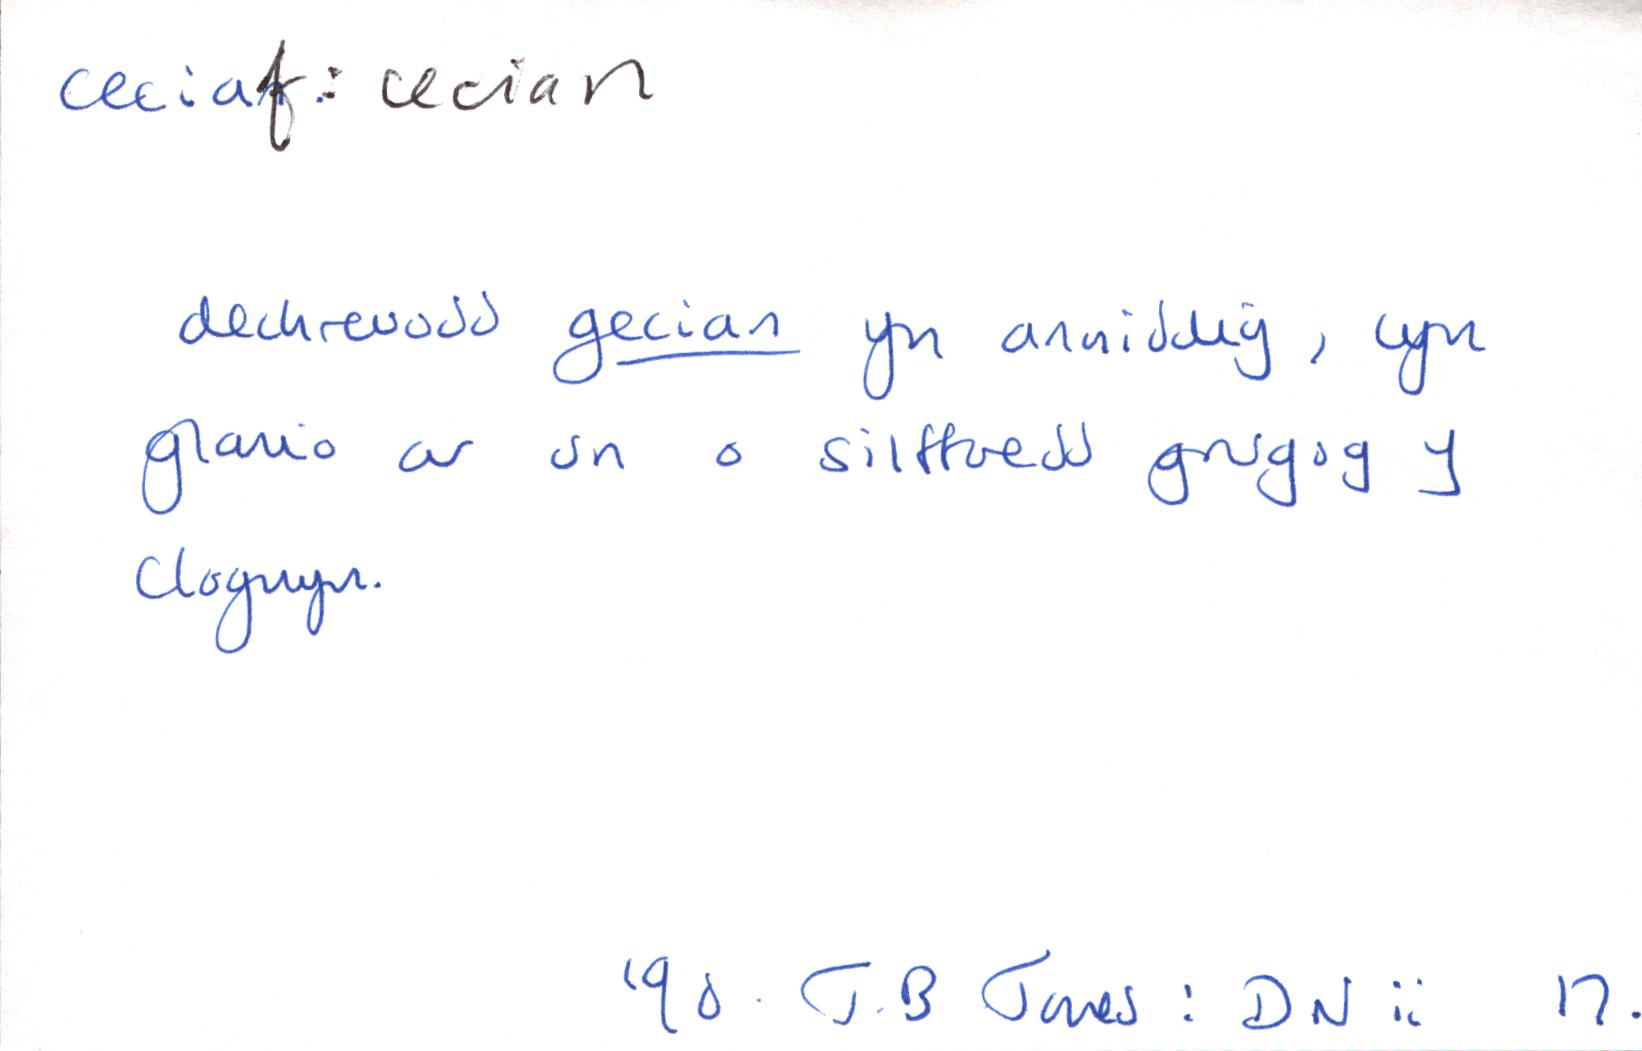 ceciaf: cecian
dechreuodd gecian yn anniddig, cyn
glanio ar un o silffoedd grugog y
clogwyn.
'90. J.B Jones: DN ii 17.